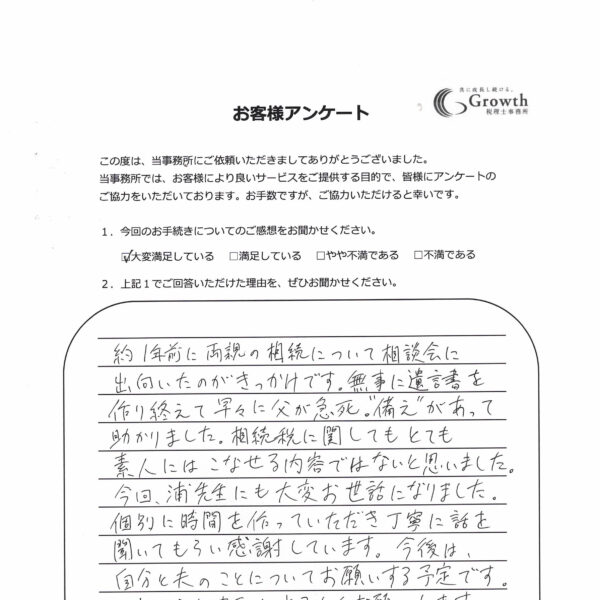 共に成長し続ける。
Growth
税理士事務所
お客様アンケート
この度は、当事務所にご依頼いただきましてありがとうございました。
当事務所では、お客様により良いサービスをご提供する目的で、皆様にアンケートの
ご協力をいただいております。お手数ですが、ご協力いただけると幸いです。
1．今回のお手続きについてのご感想をお聞かせください。
☑大変満足している □満足している □やや不満である □不満である
2．上記1でご回答いただけた理由を、ぜひお聞かせください。
約1年前に両親の相続について相談会に
出向いたのがきっかけです。無事に遺言書を
作り終えて早々に父が急死。"備え"があって
助かりました。相続税に関してもとても
素人にはこなせる内容ではないと思いました。
今回、浦先生にも大変お世話になりました。
個別に時間を作っていただき丁寧に話を
聞いてもらい感謝しています。今後は、
自分と夫のことについてお願いする予定です。